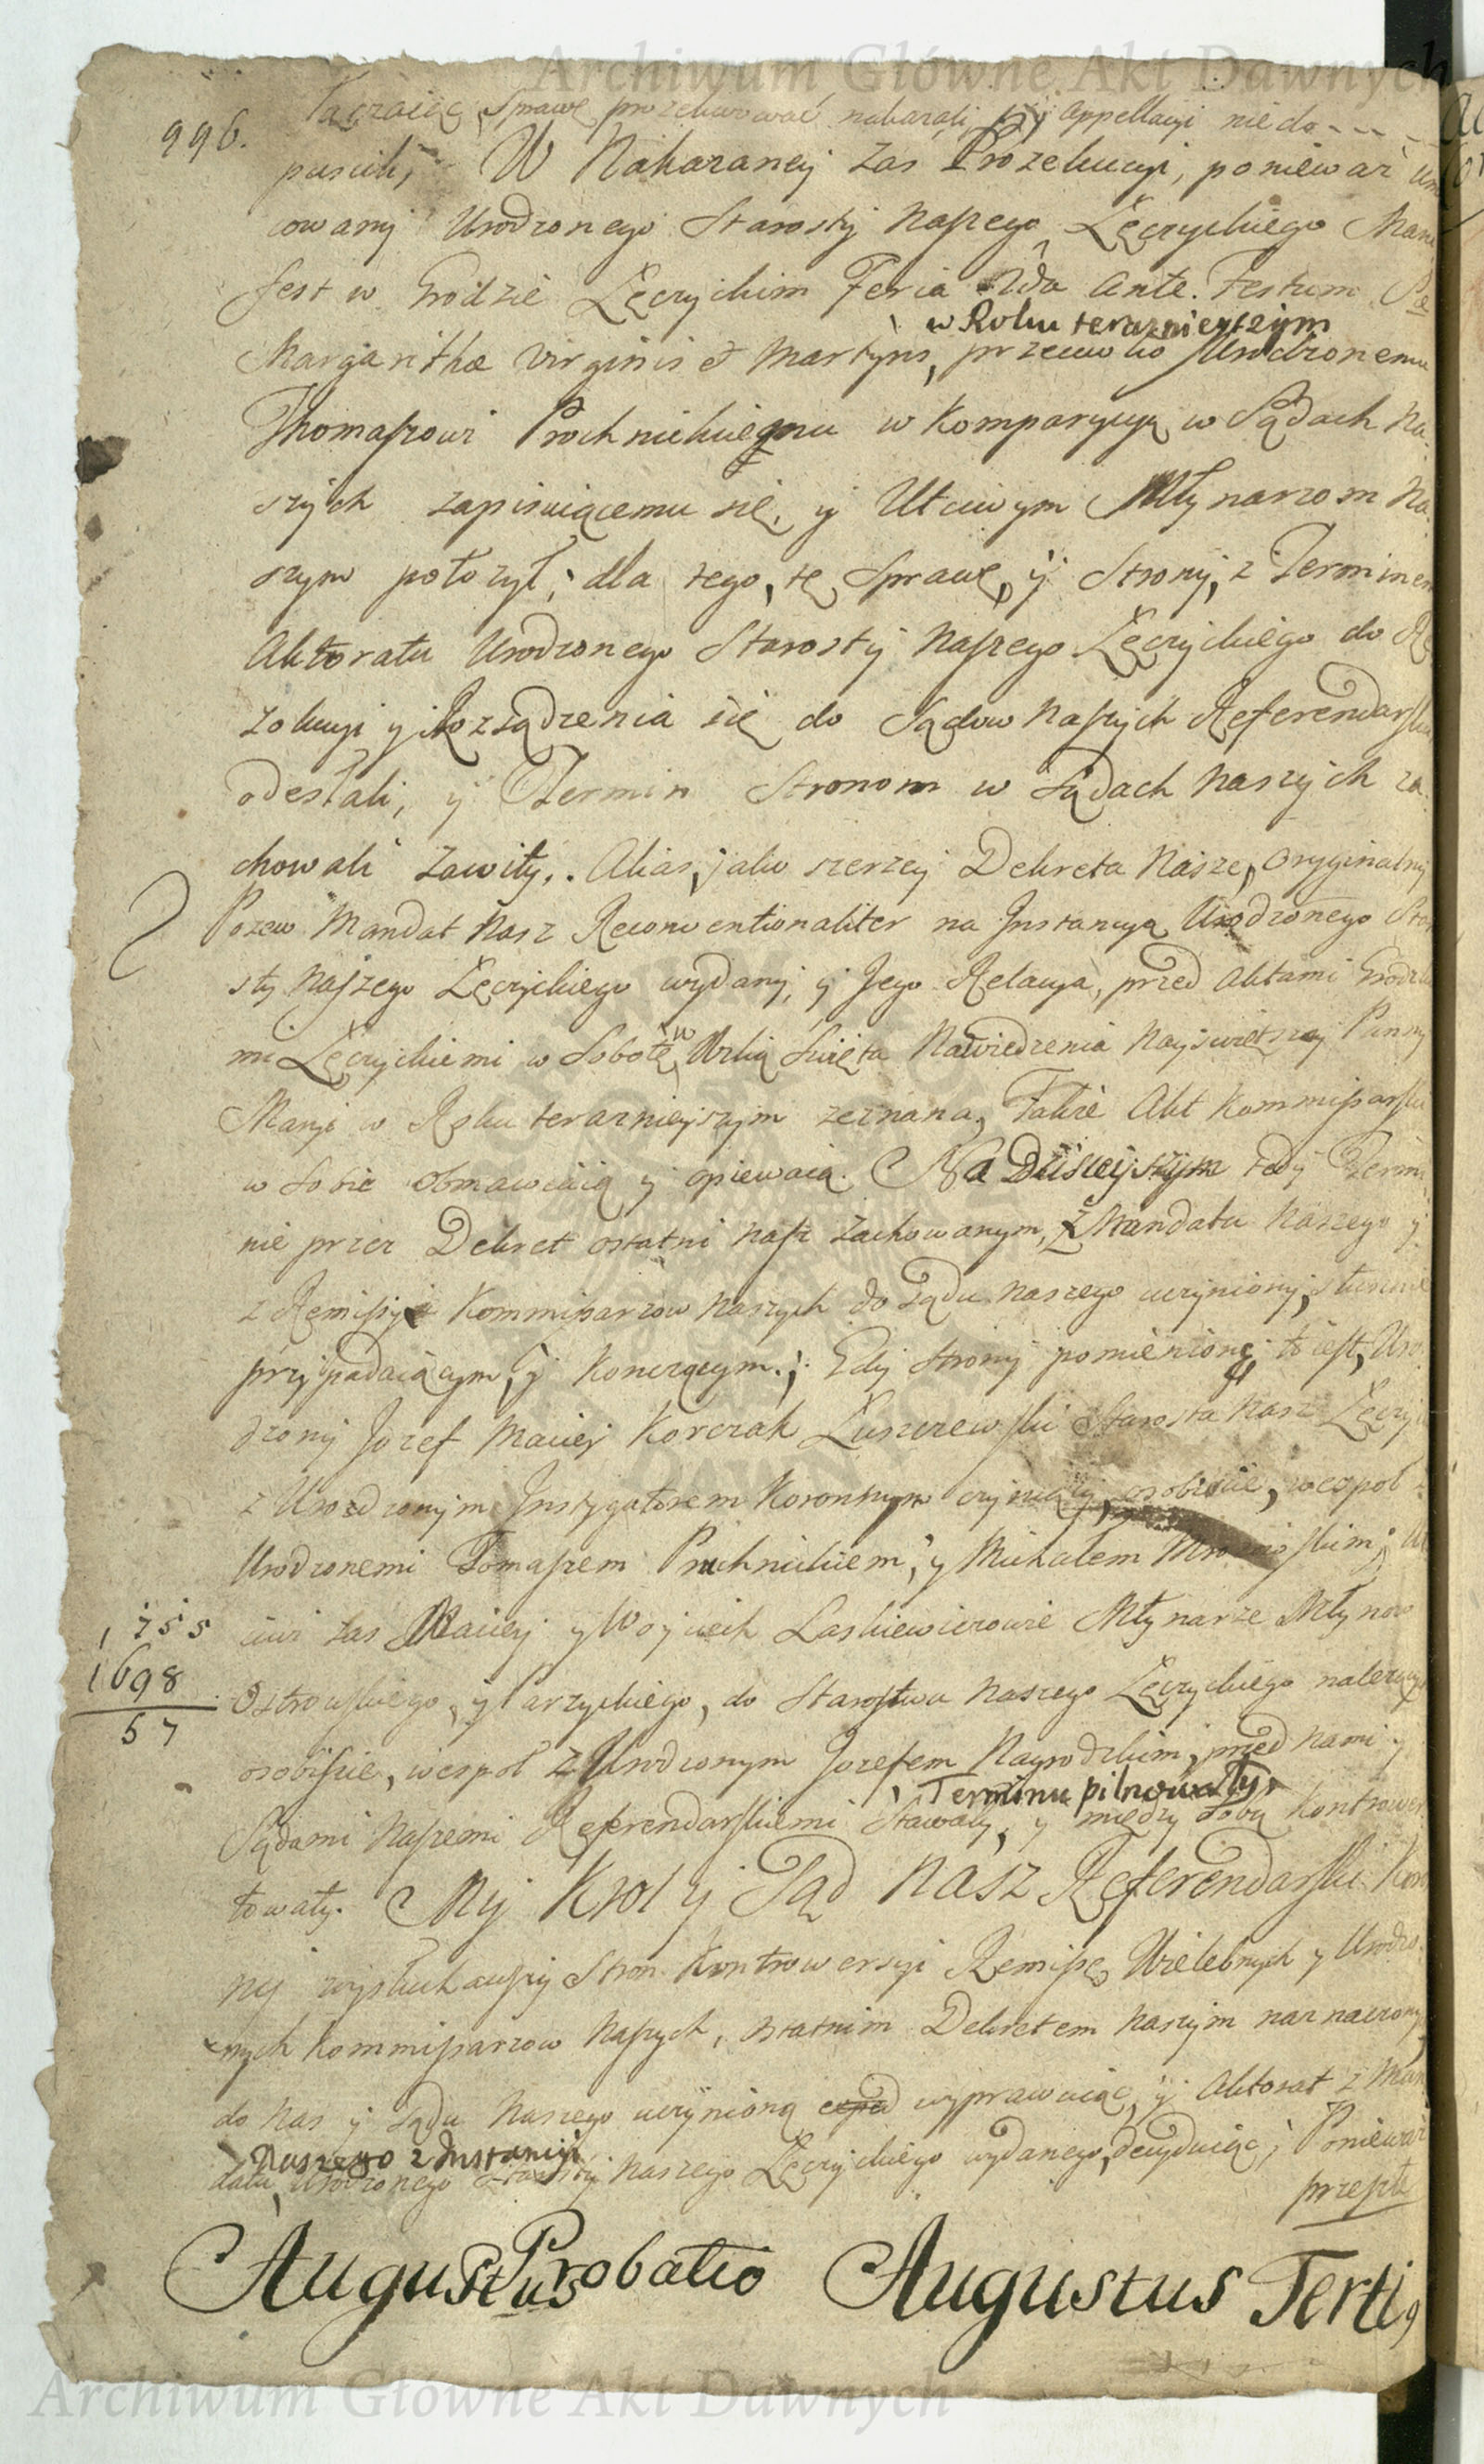 Archiwum Główne Akt Dawnych
996.
Łączaięc Sprawę prozekwować nakazali, y appellacyi nie do---
puscili; W Nakazaney zas Prozekucyi, poniewaz
cowany Urodzonego Starosty Naszego Łęczyckiego Mani
fest w Grodzie Łęczyckim Feria 2da Ante Festum Stæ
w Roku teraznieyszym
Margarithæ Virginis et Martyris, przeciwko Urodzonemu
Thomaszowi Prochnickiemu w Komparycyą w Sądach Na
szych zapisuiącemu się, y Utciwym Młynarzom Na
szym połozył; dla tego, tę Sprawę, y Strony, z Terminem
Aktoratu Urodzonego Starosty Naszego Łęczyckiego do Re
zolucyi y Rozsądzenia się do Sądow Naszych Referendarskich
odesłali, y Termin Stronom w Sądach Naszych za
chowali Zawity. Alias, jako szerzey Dekreta Nasze, Oryginalny
Pozew Mandat Nasz Reconventionaliter na Instancyą Urodzonego Staro
sty Naszego Łęczyckiego wydany, y Jego Relacya, przed Aktami Grodzkie
mi Łęczyckiemi w Sobotę, w Wilią Swięta Nawiedzenia Nayswiętszey Panny
Maryi w Roku teraznieyszym zeznana, Takze Akt Kommissarski
w Sobie obmawiaią y opiewaią. Na Dzisieyszym tedy Termi
nie przez Dekret ostatni Nasz Zachowanym, z Mandatu Naszego y
z Remissyi Kommissarzow Naszych do Sądu Naszego uczynioney, słusznie
przypadaiącym, y Konczącym; Gdy Strony pomienione, to iest, Uro
dzony Jozef Maciey Korczak Łuszczewski Starosta Nasz Łęczycki
z Urodzonym Instygatorem Koronnym czyniący, osobiscie, wespoł z
Urodzonemi Tomaszem Pruchnickiem, y Michałem
1755
1698
57
ciwi zas Maciey y Woyciech Laskiewiczowie Młynarze Młynow
Ostrowskiego, y Parzyckiego, do Starostwa Naszego Łęczyckiego nalezących
osobiscie, wespoł z Urodzonym Jozefem Nagrodzkim, przed Nami y
Terminu pilnowały,
Sądami Naszemi Referendarskiemi Stawały, y między Sobą Kontrower
towały. My Krol y Sąd Nasz Referendarski Koron
ny wysłuchawszy Stron Kontrowersyi Remissę Wielebnych y Urodzo
nych Kommissarzow Naszych, ostatnim Dekretem Naszym naznaczonych
do Nas y Sądu Naszego uczynioną wyprawuiąc, y Aktorat z Man
Naszego z Instancyi
datu Urodzonego Starosty Naszego Łęczyckiego wydanego, decyduiąc; Poniewaz
przeszłe
Augustus Probatio Augustus Terti9
Archiwum Główne Akt Dawnych